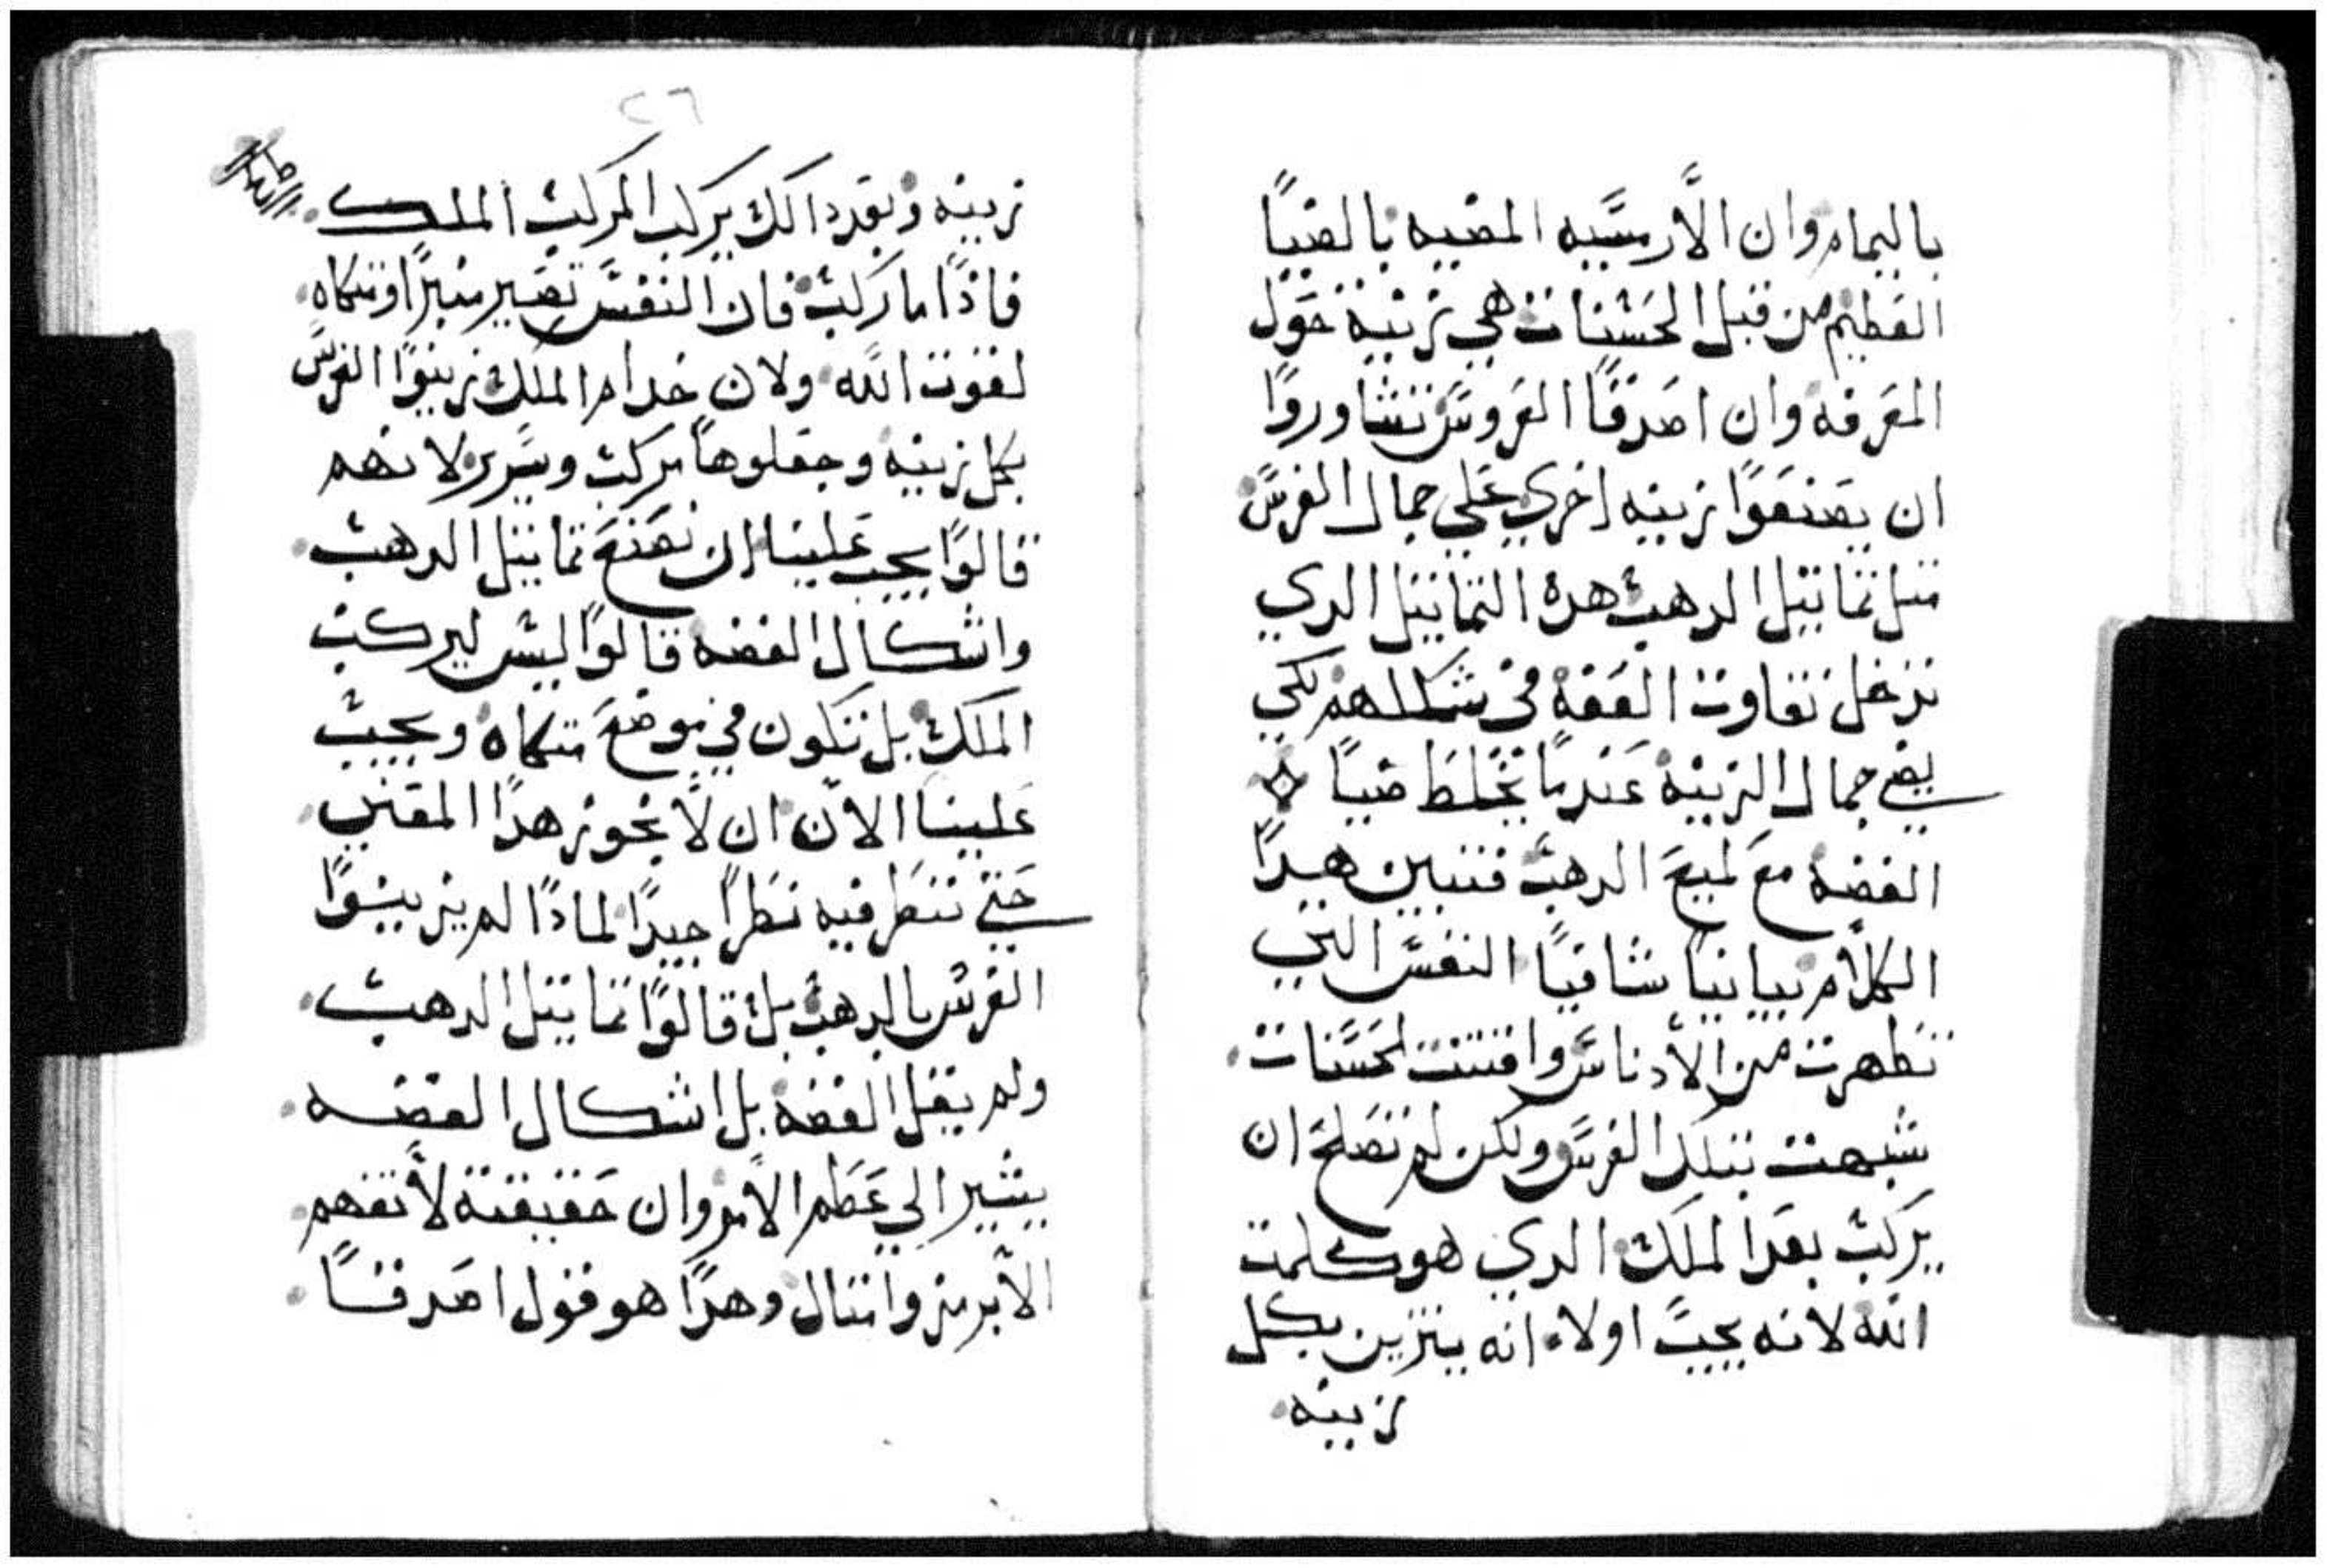 باليمام وان الأرسَّيه المضيه بالضيًا
العظيم من قبل الحَسْنات هي تزينه حَوَل
المعَرفه وان اصَدقًا العَروسَ تشاوروًا
ان يصَنعَوًا زينه اخري عَلي جمال الفرسَ
متل تماتيل الدهب هده التماتيل الدي
تدخل تفاوت الفضه في شكلهم لكي
يضي جمال الزينه عَندمًا تختلط ضيًا
الفضه مع لميعَ الدهب فتبين هدًا
الكلام بيانيًا شافيًا النفسَ التي
تطهرت من الأدناسَ واقتنت لحَسَنات
شبهت بتلك الفرسَ ولكن لم تصَلح ان
يركب بعَد الملك الدي هو كلمت
الله لانه يجب اولا انه يتزين بكل
زينه
٢٦
زينه وبعَد دالك يركب المركب الملك
فاذًا ما ركب فان النفسَ تصَير منبرًا ومتكاه
لقوت الله ولان خدام الملك زينوًا الفرسَ
بكل زينه وجعَلوهًا مركب وسَرير لانهم
قالوًا يجب عَلينا ان نصَنعَ تماتيل الدهب
واشكال الفضه قالوًا ليس ليركب
الملك بل تكون في موضعَ متكاه ويجب
عَلينا الان ان لا نجوز هدًا المعَني
حَتي ننظر فيه نظرًا جيدًا لمادًا لم يزينوًا
الفرس بالدهب بل قالوًا تماتيل الدهب
ولم يقل الفضه بل اشكال الفضه
يشير الي عَظم الأمر وان حَقيقتة لأتفهم
الأبرمز وامتال وهدًا هو قول اصَدقًا